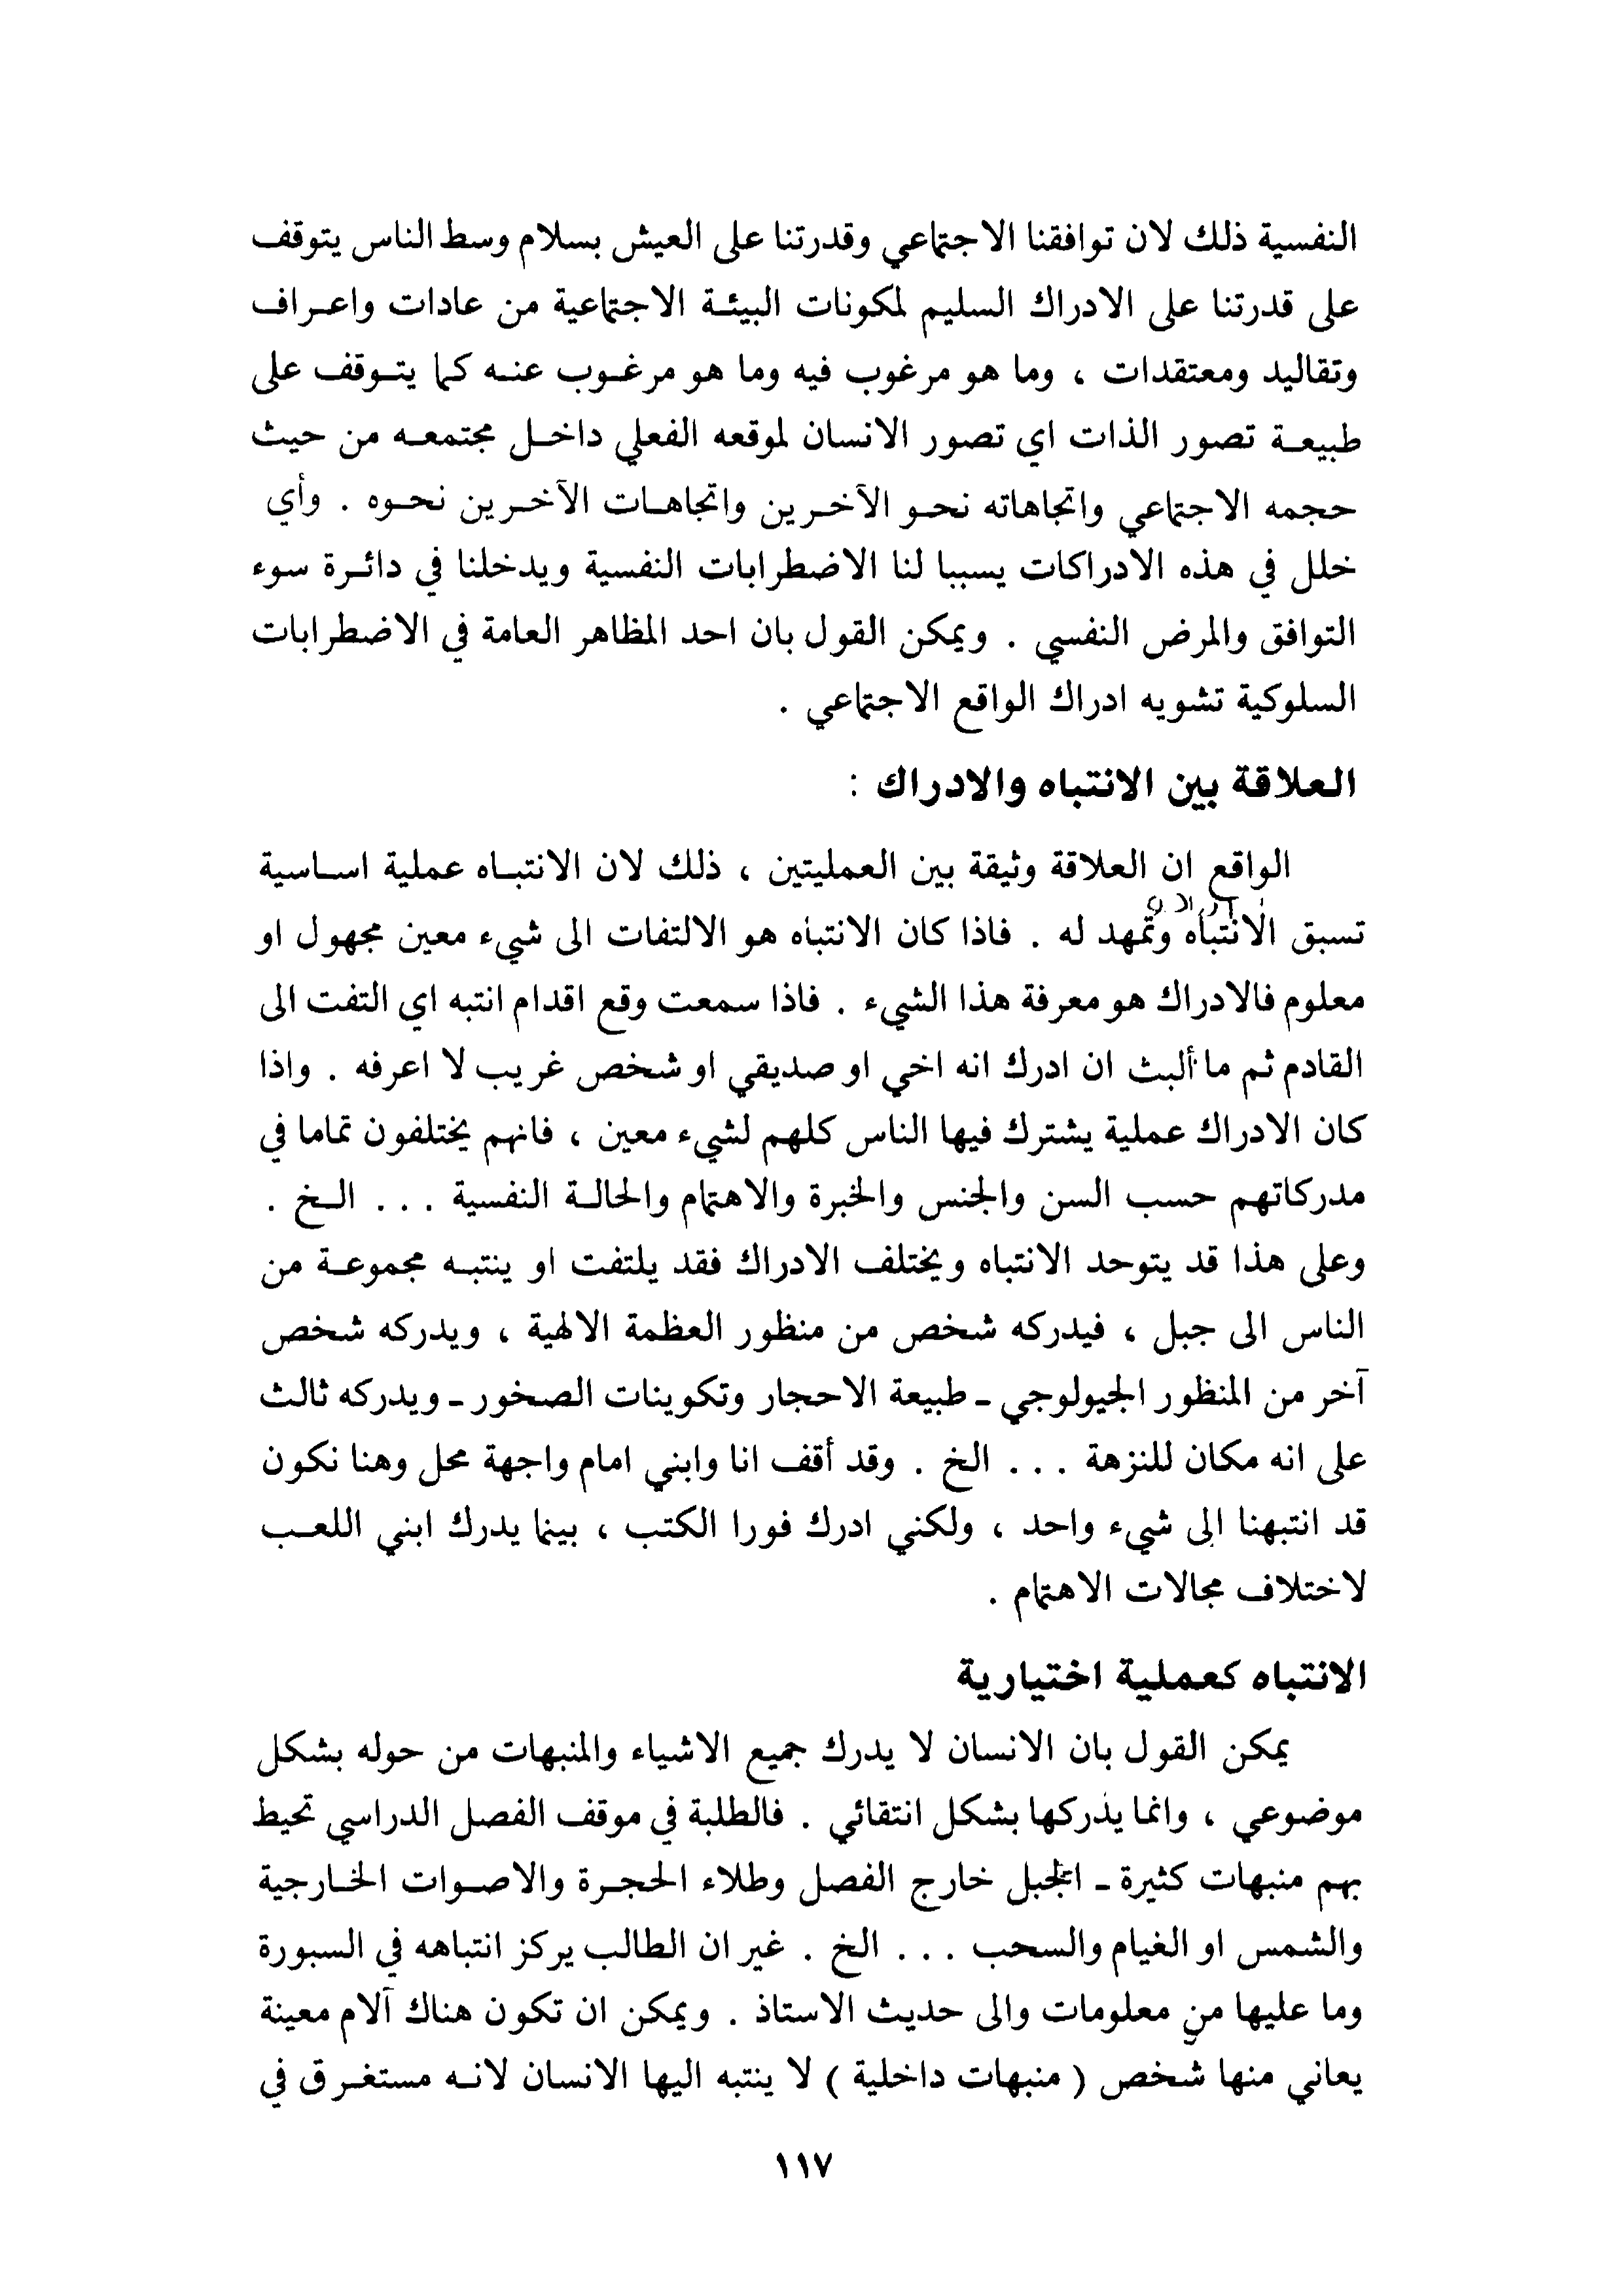 النفسية ذلك لان توافقنا الاجتماعي وقدرتنا على العيش بسلام وسط الناس يتوقف
على قدرتنا على الادراك السليم لمكونات البيئة الاجتماعية من عادات واعراف
وتقاليد ومعتقدات ، وما هو مرغوب فيه وما هو مرغوب عنه كما يتوقف على
طبيعة تصور الذات اي تصور الانسان لموقعه الفعلي داخل مجتمعه من حيث
حجمه الاجتماعي واتجاهاته نحو الآخرين واتجاهات الآخرين نحوه . وأي
خلل في هذه الادراكات يسببا لنا الاضطرابات النفسية ويدخلنا في دائرة سوء
التوافق والمرض النفسي . ويمكن القول بان احد المظاهر العامة في الاضطرابات
السلوكية تشويه ادراك الواقع الاجتماعي .
العلاقة بين الانتباه والادراك :
الواقع ان العلاقة وثيقة بين العمليتين ، ذلك لان الانتباه عملية اساسية
تسبق الانتباه وتمهد له . فاذا كان الانتباه هو الالتفات الى شيء معين مجهول او
معلوم فالادراك هو معرفة هذا الشيء . فاذا سمعت وقع اقدام انتبه اي التفت الى
القادم ثم ما ألبث ان ادرك انه اخي او صديقي او شخص غريب لا اعرفه . واذا
كان الادراك عملية يشترك فيها الناس كلهم لشيء معين ، فانهم يختلفون تماما في
مدركاتهم حسب السن والجنس والخبرة والاهتمام والحالة النفسية . . . الخ .
وعلى هذا قد يتوحد الانتباه ويختلف الادراك فقد يلتفت او ينتبه مجموعة من
الناس الى جبل ، فيدركه شخص من منظور العظمة الالهية ، ويدركه شخص
آخر من المنظور الجيولوجي ـ طبيعة الاحجار وتكوينات الصخور ـ ويدركه ثالث
على انه مكان للنزهة . . . الخ . وقد أقف انا وابني امام واجهة محل وهنا نكون
قد انتبهنا الى شيء واحد ، ولكني ادرك فورا الكتب ، بينما يدرك ابني اللعب
لاختلاف مجالات الاهتمام .
الانتباه كعملية اختيارية
يمكن القول بان الانسان لا يدرك جميع الاشياء والمنبهات من حوله بشكل
موضوعي ، وانما يدركها بشكل انتقائي . فالطلبة في موقف الفصل الدراسي تحيط
بهم منبهات كثيرة ـ الجبل خارج الفصل وطلاء الحجرة والاصوات الخارجية
والشمس او الغيام والسحب . . . الخ . غير ان الطالب يركز انتباهه في السبورة
وما عليها من معلومات والى حديث الاستاذ . ويمكن ان تكون هناك آلام معينة
يعاني منها شخص ( منبهات داخلية ) لا ينتبه اليها الانسان لانه مستغرق في
١١٧